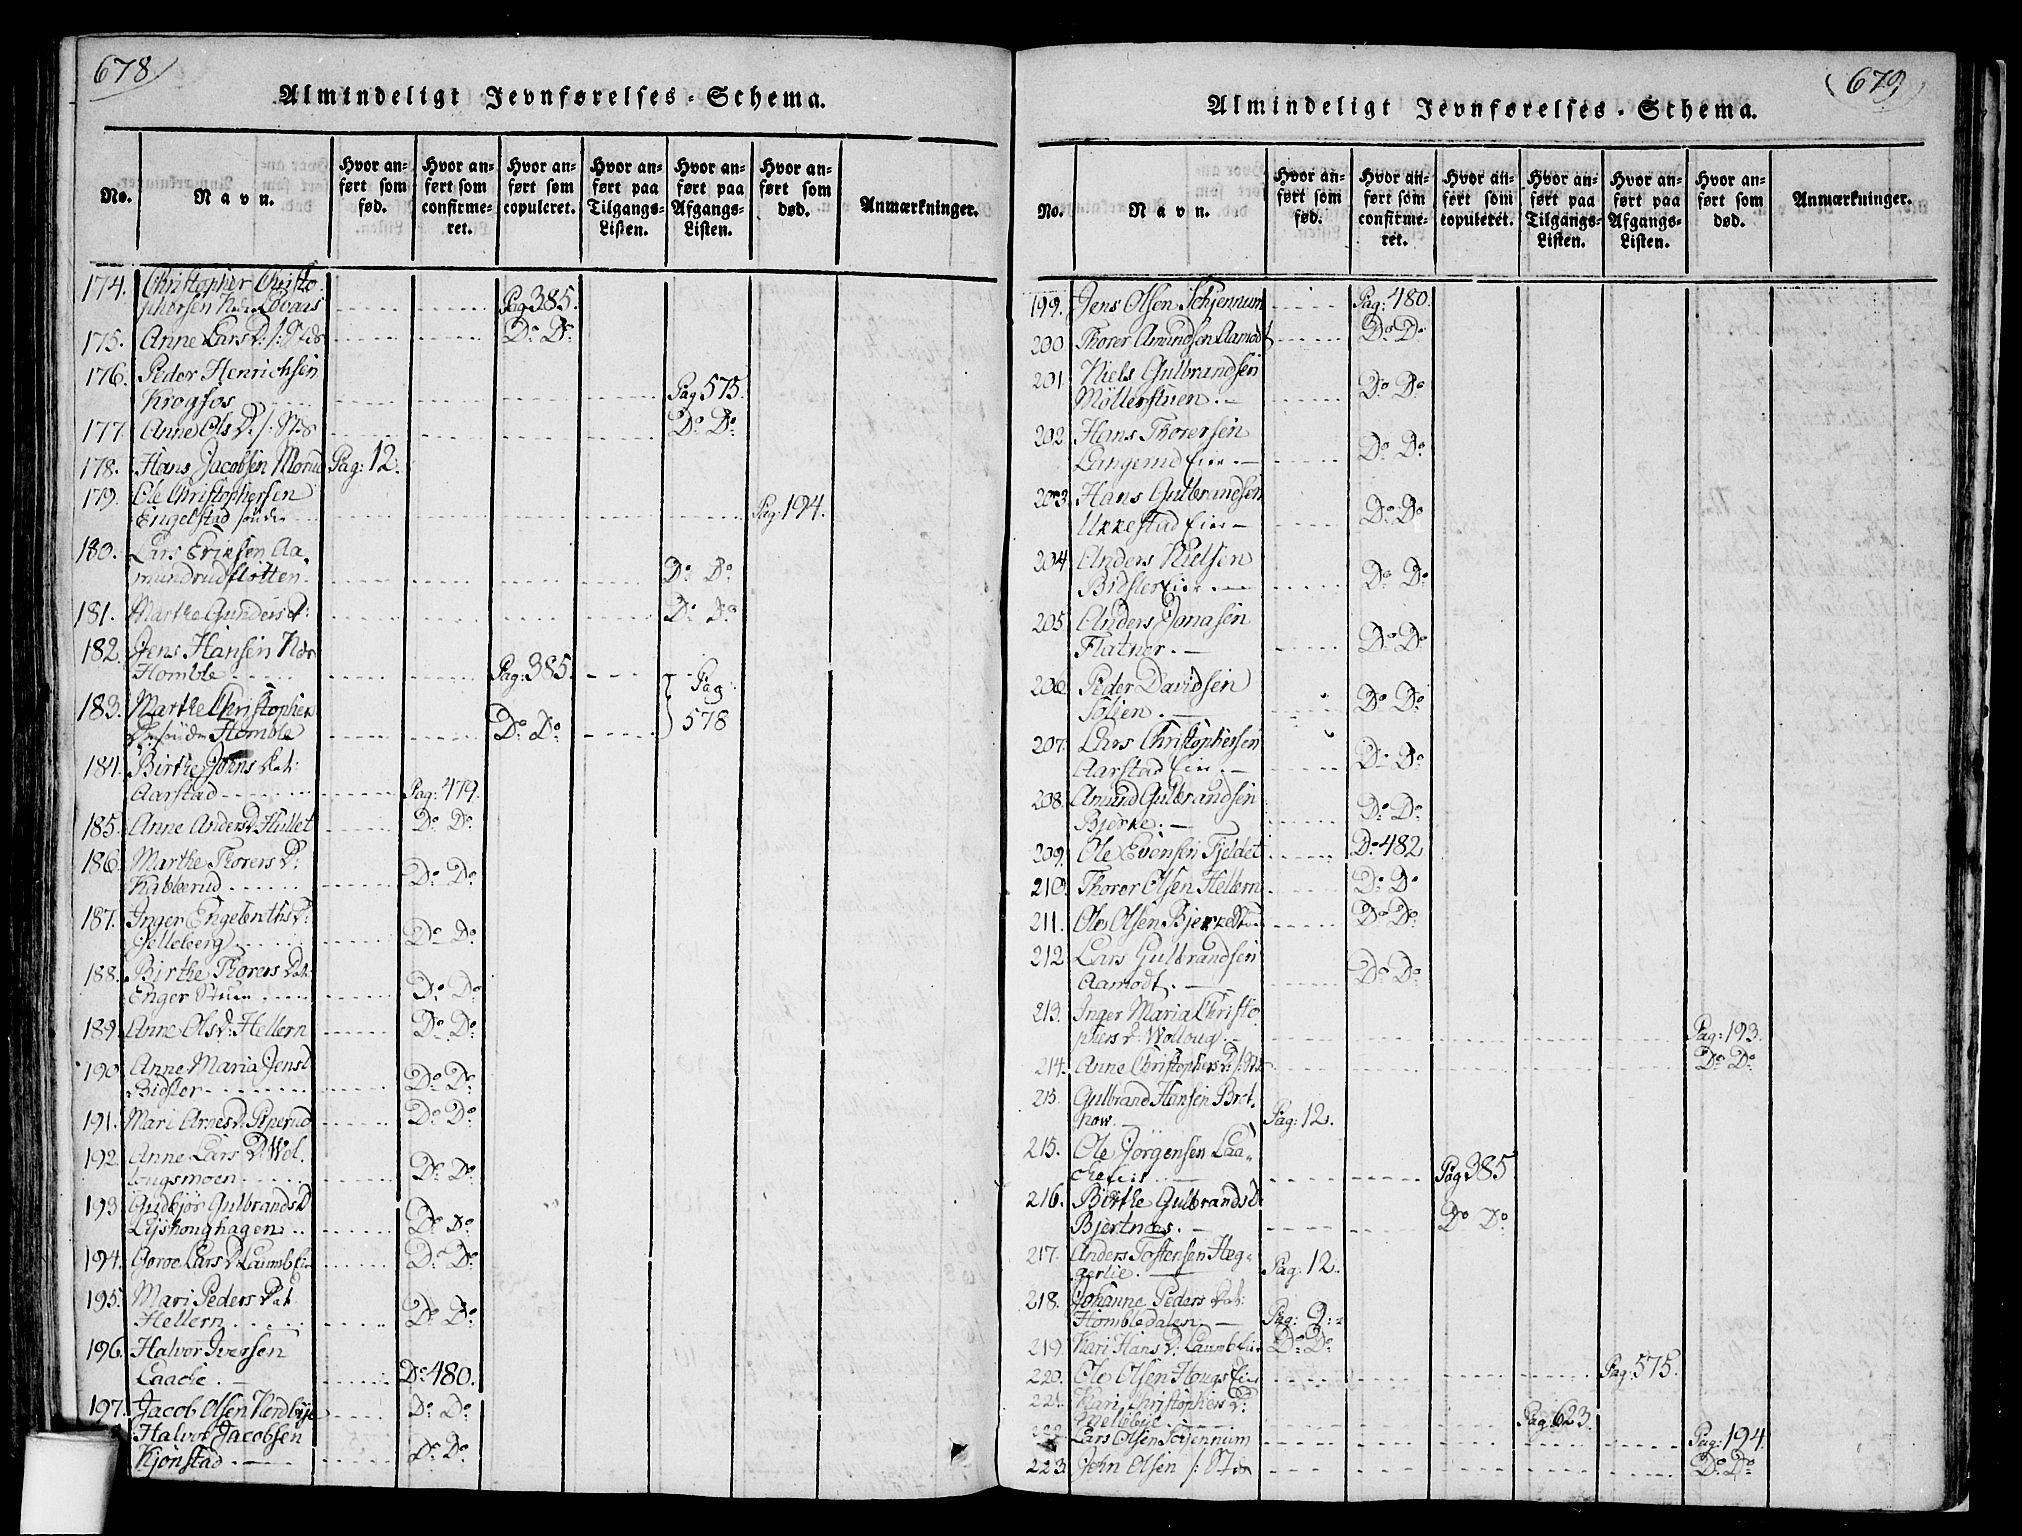 678
Almindeligt Jevnførelses-Schema.
No.
Navn.
Hvor an-
ført som
fød.
Hvor an-
ført som
confirme-
ret.
Hvor an-
ført som
copuleret.
Hvor an-
ført paa
Tilgangs-
Listen.
Hvor an-
ført paa
Afgangs-
Listen.
Hvor an-
ført som
død.
Anmærkninger.
174. Christopher Christo-
phersen Lovaas Pag 385.
175. Anne Lars D: /: Stds Do Do
176. Peder Henrichsen
Krogfos Pag 575.
177. Anne Ols D: /: Stds Do Do
178. Hans Jacobsen Morud Pag: 12.
179. Ole Christophersen
Engelstad søndre Pag: 194.
180. Lars Eriksen Aa-
mundrudslitten Do Do
181. Marthe Gunders D: Do Do
182. Jens Hansen
Homble Pag: 385. Pag
183. Marthe Christophers
D: søndre Homble Do Do 578
184. Birthe Joens Dat:
Aarstad Pag: 479.
185. Anne Anders D: Hullet Do Do
186. Marthe Thorers D:
Kabberud Do Do
187. Inger Engebreths D:
Jelleberg Do Do
188. Birthe Thorers Dat:
Enger Stuen Do Do
189. Anne Ols D: Hellern Do Do
190. Anne Maria Jens D
Bidsler Do Do
191. Mari Arnes D: Piperud Do Do
192. Anne Lars D: Wol-
lougsmoen Do Do
193. Gudbjør Gulbrands D
Lyshoughagen Do Do
194. Goroe Lars D: Laumb Eie Do Do
195. Mari Peders Dat
Hellern Do Do
196. Halvor Iversen
Laache. Do 480.
197. Jacob Olsen Do Do
Halvor Jacobsen
Kjønstad Do Do
679
Almindeligt Jevnførelses-Schema.
No.
Navn.
Hvor an-
ført som
fød.
Hvor an-
ført som
confirme-
ret.
Hvor an-
ført som
copuleret.
Hvor an-
ført paa
Tilgangs-
Listen.
Hvor an-
ført paa
Afgangs-
Listen.
Hvor an-
ført som
død.
Anmærkninger.
199. Jens Olsen Schjennum Pag: 480.
200 Thorer Amundsen Aamodt Do Do
201. Niels Gulbrandsen
Möllerstuen. Do Do
202. Hans Thorersen
Langerud Eie Do Do
203. Hans Gulbrandsen
Ukkestad Eie Do Do
204 Anders Nielsen
Bidsler Eie Do Do
205 Anders Jonasen
Flatner. Do Do
206 Peder Davidsen
Solien. Do Do
207. Lars Christophersen
Aarstad Eie. Do Do
208. Amund Gulbrandsen
Bjerke. Do Do
209. Ole Evensen Fjeldet Do 482
210. Thorer Olsen Hellern Do Do
211. Ole Olsen Bjerke Do Do
212 Lars Gulbrandsen
Aamodt. Do Do
213. Inger Maria Christo-
phers D: Wolloug. Pag: 193.
214. Anne Christophers D: /: Stds Do Do
215. Gulbrand Hansen Brat-
Pag: 12.
215. Ole Jörgensen Laa-
che Eie Pag 385
216. Birthe Gulbrands D
Bjertnæs. Do Do
217. Anders Torstensen Hæg-
gerlie. Pag: 12.
218. Johanne Peders Dat:
Hombledalen. Pag:
219. Kari Hans D: Laumb Eie Do Do
220. Ole Olsen Hougs Eie Pag: 575.
221. Kari Christophers D:
Pag 623.
222. Lars Olsen Schjennum Pag: 194.
223. John Olsen /: Stds Do Do